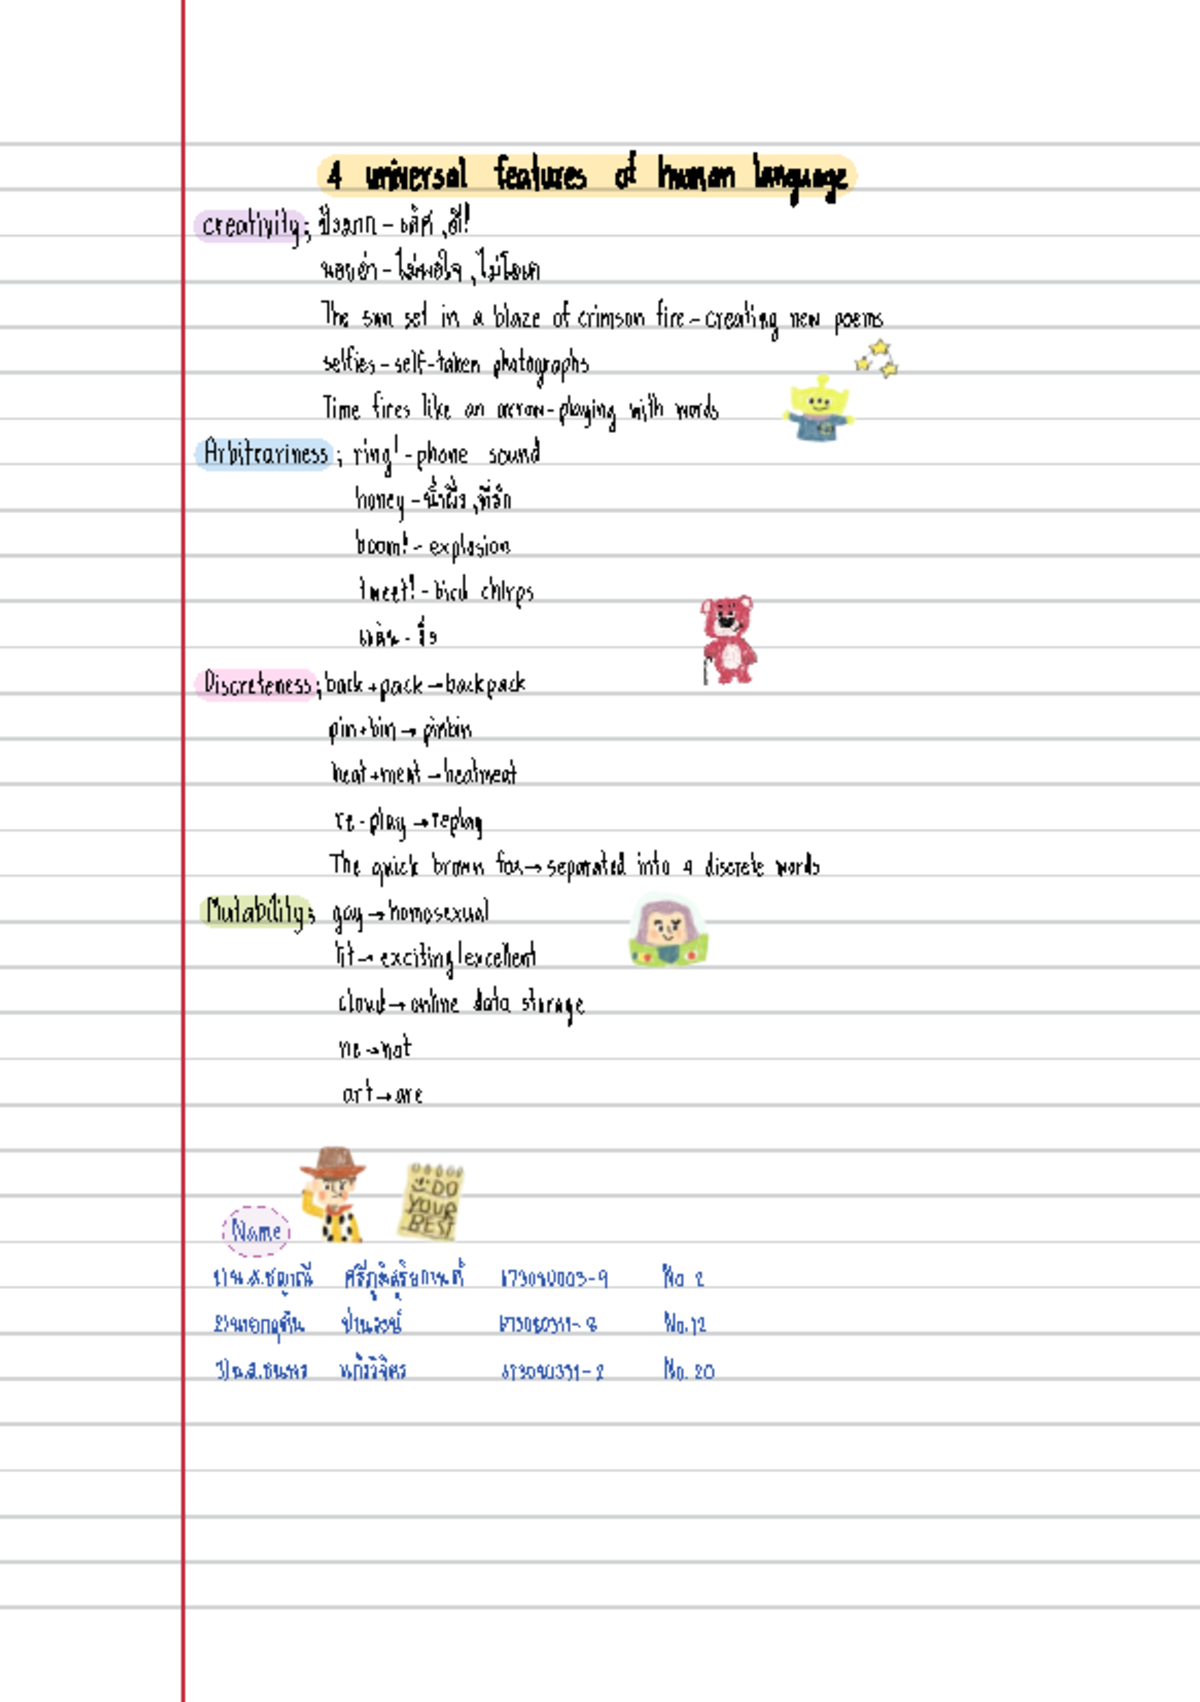 4 universal features of human language
creativity; ปังมาก - เลิศ, ดี!
นอยอ่า - ไม่พอใจ, ไม่โอเค
The sun set in a blaze of crimson fire - creating new poems
selfies - self-taken photographs
Time fires like an arrow - playing with words
Arbitrariness; ring! - phone sound
honey - น้ำผึ้ง, ที่รัก
boom! - explosion
tweet! - bird chirps
Discreteness; back + pack → backpack
pin + bin → pinbin
heat + meat → heatmeat
re - play → replay
The quick brown fox → separated into 4 discrete words
Mutability; gay → homosexual
lit → exciting/excellent
cloud → online data storage
ne → not
art → are
DO
YOUR
BEST
Name
1) น.ส. No. 2
2) นาย No. 12
3) น.ส. No. 20